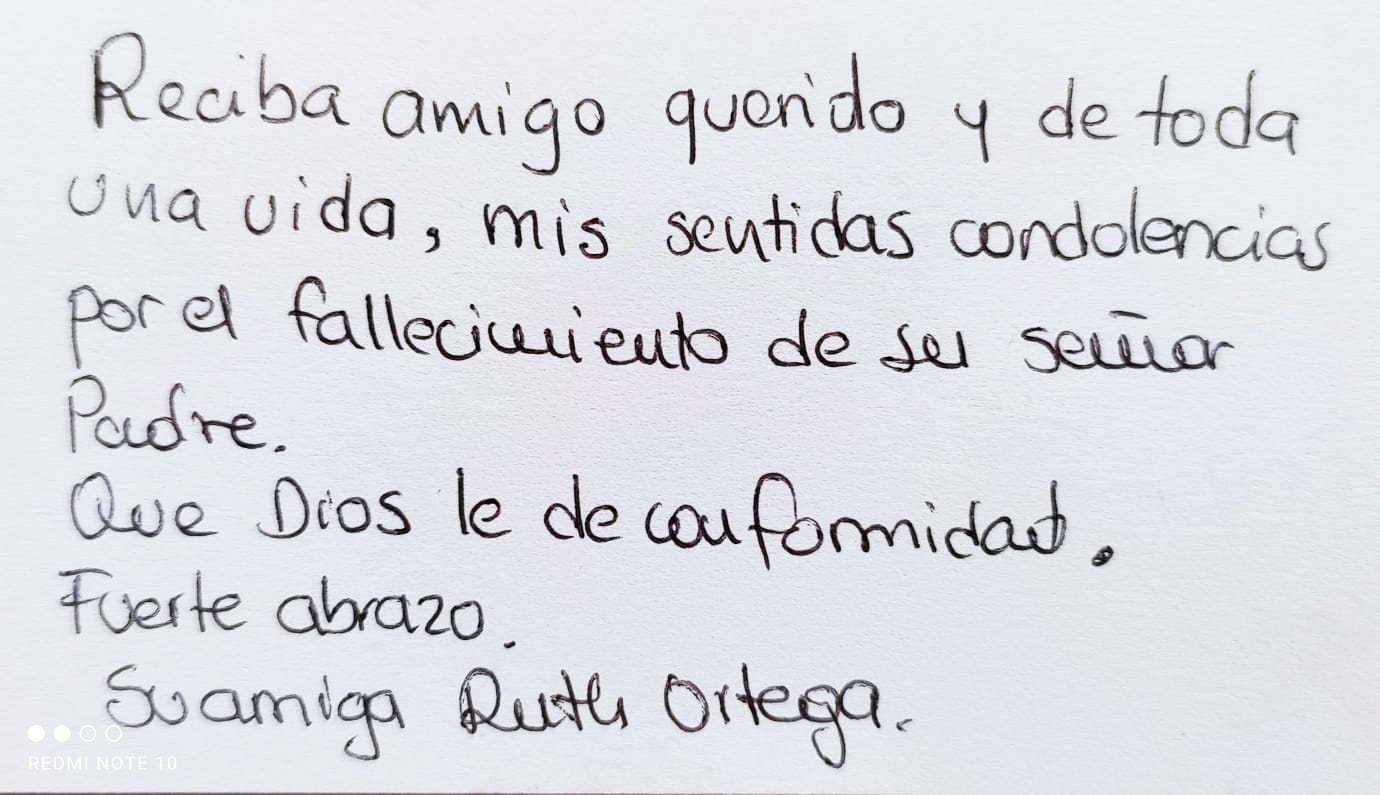 Reciba amigo querido y de toda
una vida, mis sentidas condolencias
por el fallecimiento de su señor
Padre.
Que Dios le de conformidad.
Fuerte abrazo.
Su amiga Ruth Ortega.
REDMI NOTE 10